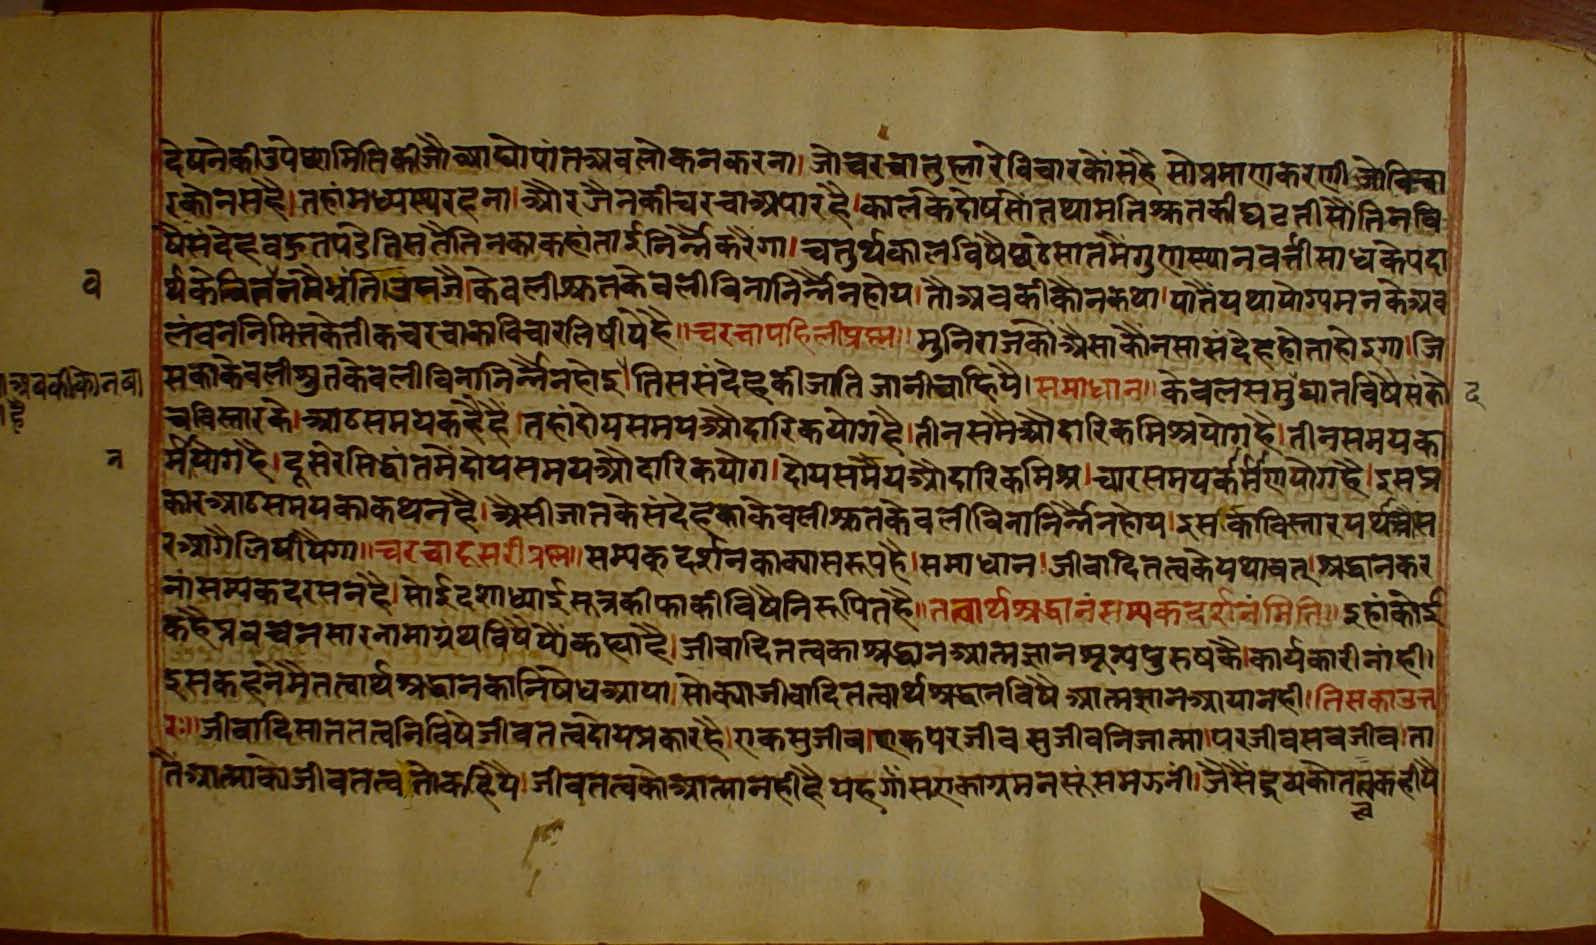 देषनेकी उपेष्यामिति कीजौ व्याघोपांत अवलोकन करना। जो चरचा तुह्मारे विचारकों सहै सो प्रमाण करणी जो विचा
रकों न सहै। तहां मध्यस्थ रहना। और जैनकी चरचा अपार है। कालके दोर्षसौं तथा मति श्रुतकी घटतीसौं तिन वि
षै संदेह बहुत पडे तिसतैं तिनका कहां तांई निर्नै करैगा। चतुर्थकाल विषै छठे सातमै गुणस्थानवर्त्ती साधके पदा
र्थके चितनमै भ्रांति उपजै। केवली श्रुतकेवली विना निर्नै न होय। तौ अबकी कौन कथा। यातैं यथायोग्य मनके अव
लंबन निमित्त केतीक चरचाका विचार लिषीये है॥ चरचा पहिली प्रश्न॥ मुनिराजकौ अैसा कौनसा संदेह होता होइगा। जि
सका केवली श्रुतकेवली विना निर्नै न होइ। तिस संदेहकी जाति जानी चाहियै। समाधान॥ केवल समुंघात विषै संको
च विस्तारके। आठ समय कहै है। तहां दोय समय औदारिक योग है। तीन समै औदारिक मिश्र योग है। तीन समय का
र्मयोग है। दूसरे सिद्धांतमै दोय समय औदारिक योग। दोय समय औदारिक मिश्र। च्यार समय कर्माण योग है। इस प्र
कार आठ समयका कथन है। अैसी जातके संदेहका केवली श्रुतकेवली विना निर्नै न होय। इसका विस्तार यथा औस
र आगै लिषीयैगा॥ चरचा दूसरी प्रश्न॥ सम्यक दर्शनका क्या सरूप है। समाधान। जीवादि तत्वके यथावत्। श्रद्धान कर
नां सम्यक दरसन है। सोई दशाध्याई सूत्रकी फाकी विषै निरूपित है॥ तत्वार्थ श्रद्धानं सम्यक दर्शनं मिति॥ इहां कोई
कहै प्रवचनसार नामा ग्रंथ विषै यौं कह्या है। जीवादि तत्वका श्रद्धान आत्मज्ञान शून्य पुरुषकै। कार्यकारी नांही।
इस कहनैमै तत्वार्थ श्रद्धानका निषेध आया। सो क्या जीवादि तत्वार्थ श्रद्धान विषै आत्मज्ञान आया नही। तिसका उत्त
र॥ जीवादि सात तत्वनि विषै जीव तत्व दोय प्रकार है। एक सुजीव। एक परजीव सुजीव निजात्मा। परजीव सब जीव। ता
तै आत्माकौ जीव तत्व तो कहियै। जीव तत्वकौ आत्मा नही है यह गौंस एकाग्र मनसूं समझनी। जैसैं द्रव्यकौ तत्व कहीयै
व
अबकी कौन वा
है
न
द
त्व